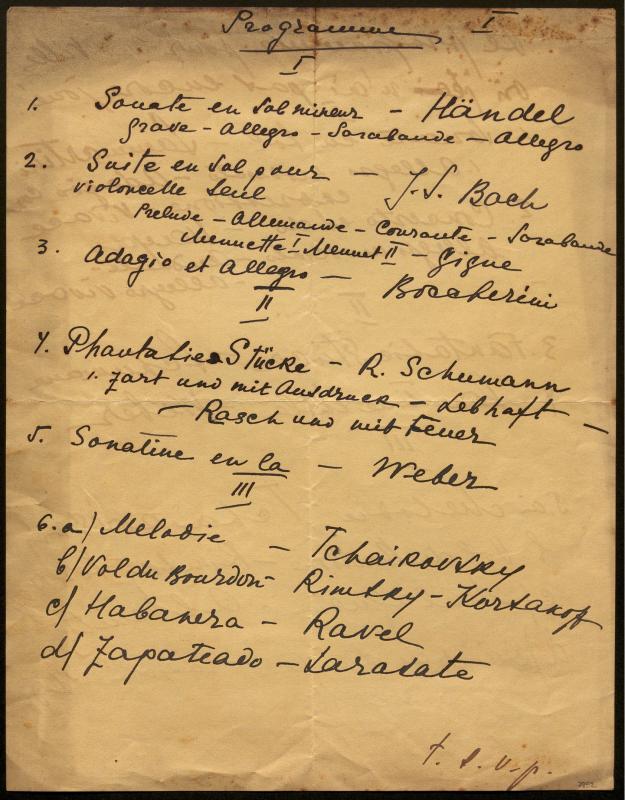 Programme I
I
1. Sonate en Sol mineur - Händel
Grave - Allegro - Sarabande - Allegro
2. Suite en Sol pour - J. S. Bach
violoncelle seul
Prelude - Allemande - Courante - Sarabande
Mennette I Mennet II - Gigue
3. Adagio et Allegro - Boccherini
II
4. Phantasie Stücke - R. Schumann
1. Zart und mit Ausdruck - Lebhaft -
- Rasch und mit Feuer
5. Sonatine en la - Weber
III
6. a/ Melodie - Tchaikovsky
b/ Vol du Bourdon - Rimsky-Korsakoff
c/ Habanera - Ravel
d/ Zapateado - Sarasate
t. s. v. p.